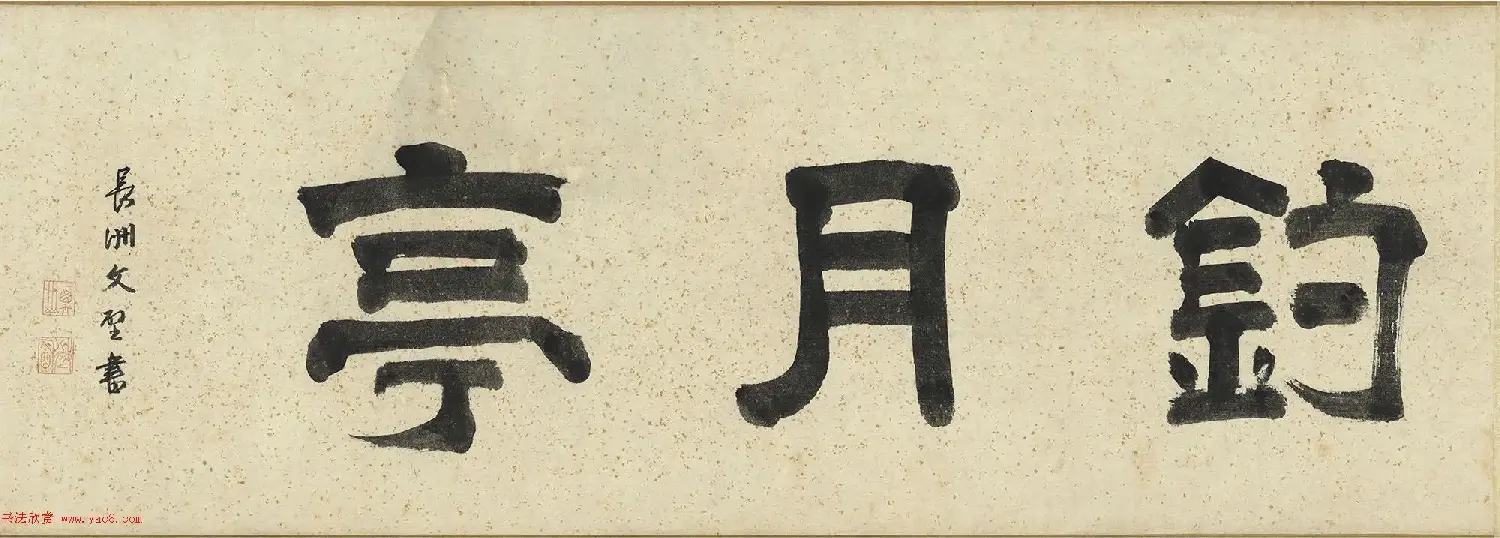 釣月亭
長洲文書
书法欣赏 www.yac8.com